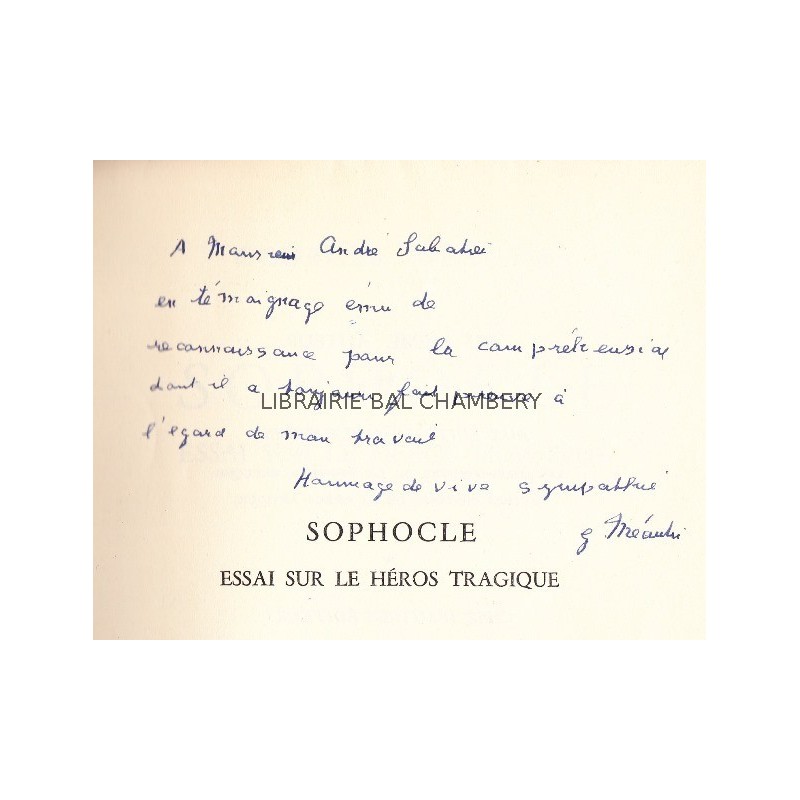 A Monsieur André Sabatier
en témoignage ému de
reconnaissance pour la compréhension
dont il a toujours fait preuve à
LIBRAIRIE BAL CHAMBERY
l'égard de mon travail
Hommage de vive sympathie
G Méautis
SOPHOCLE
ESSAI SUR LE HÉROS TRAGIQUE